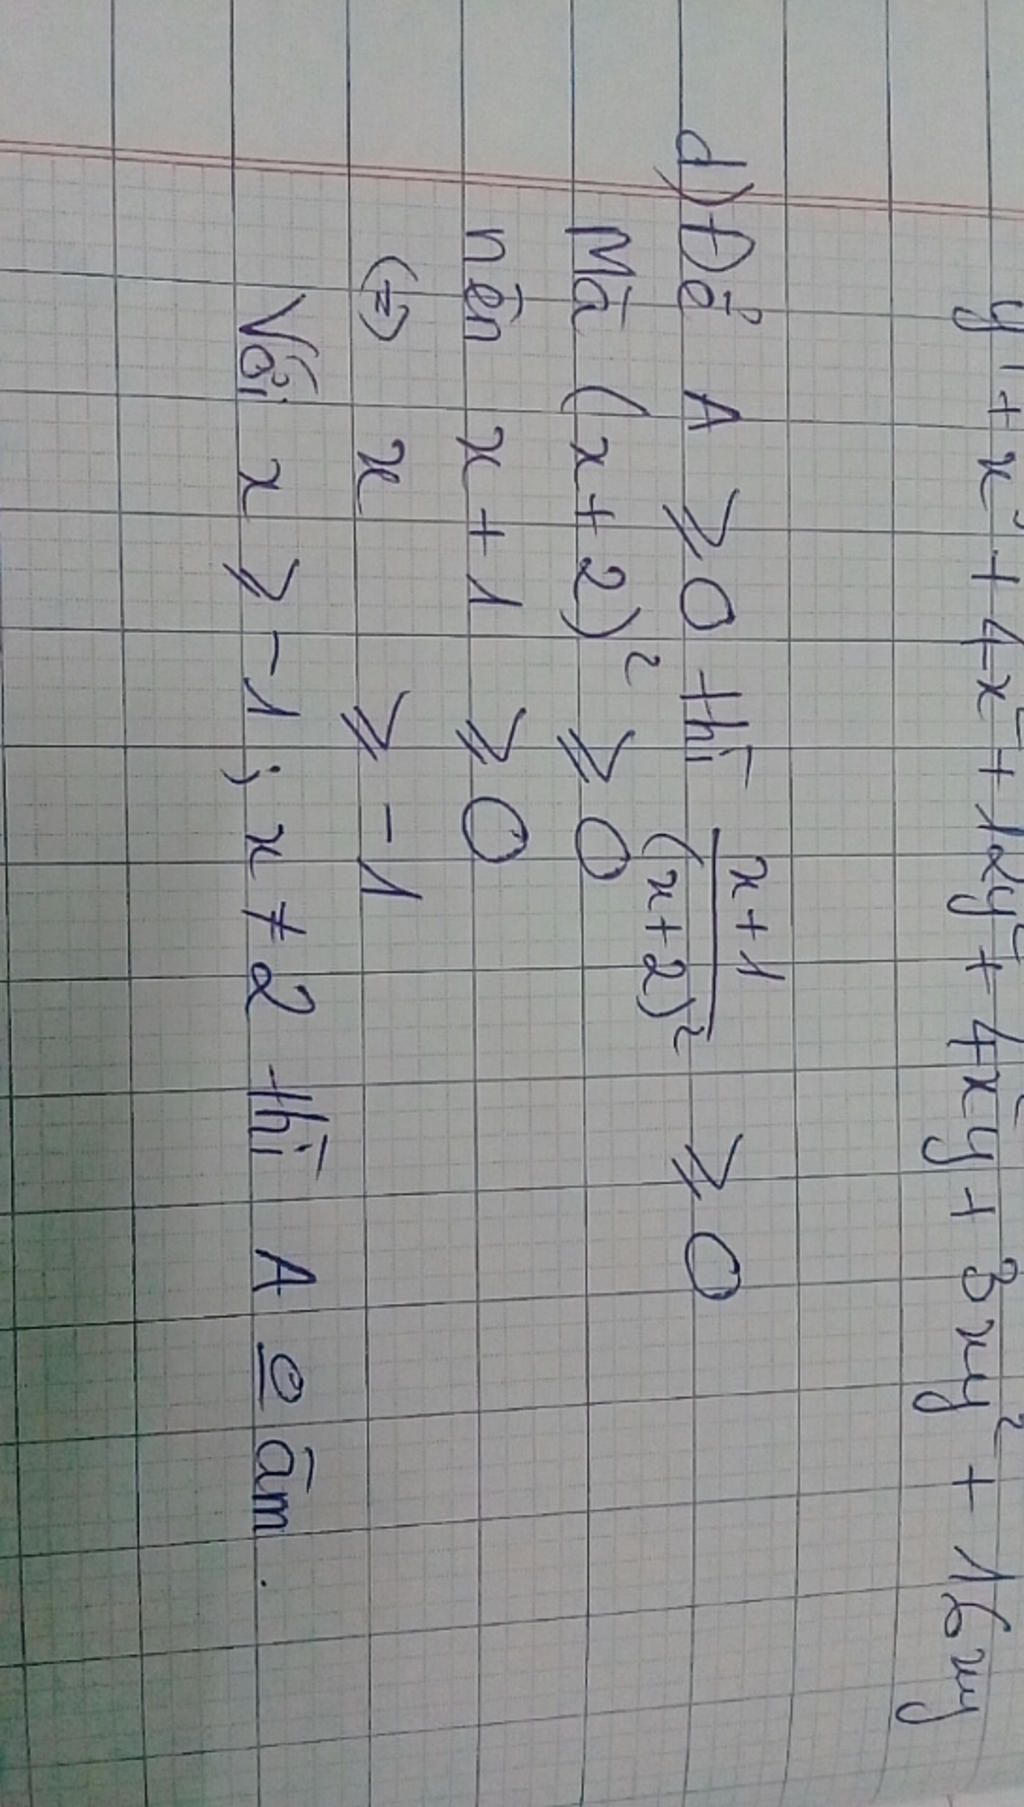 y⁴ + x³ + 4x² + 12y² + 4x²y + 3xy² + 16xy
d) Để A ⩾ 0 thì (x+1)/(x+2)² ⩾ 0
Mà (x+2)² ⩾ 0
nên x + 1 ⩾ 0
(=) x ⩾ -1
Với x ⩾ -1; x ≠ 2 thì A o âm.